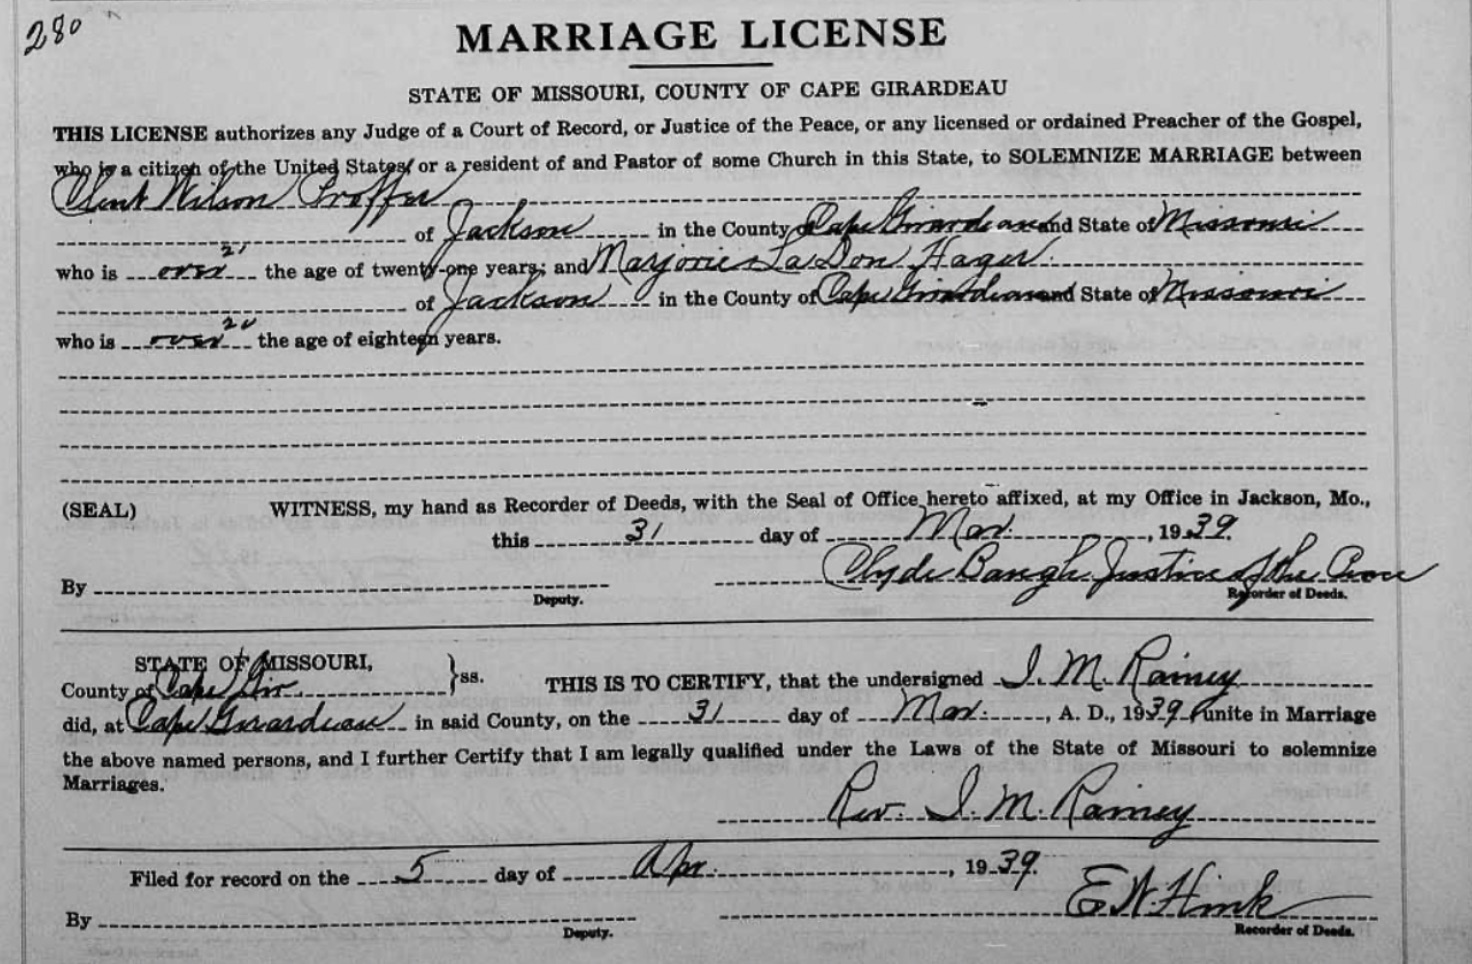 280
MARRIAGE LICENSE
STATE OF MISSOURI, COUNTY OF CAPE GIRARDEAU
THIS LICENSE authorizes any Judge of a Court of Record, or Justice of the Peace, or any licensed or ordained Preacher of the Gospel,
who is a citizen of the United States, or a resident of and Pastor of some Church in this State, to SOLEMNIZE MARRIAGE between
Clint Wilson Proffer
of Jackson in the County of Cape Girardeau and State of Missouri
21
who is over the age of twenty-one years; and Marjorie LaDon Hager
of Jackson in the County of Cape Girardeau and State of Missouri
20
who is over the age of eighteen years.
(SEAL) WITNESS, my hand as Recorder of Deeds, with the Seal of Office hereto affixed, at my Office in Jackson, Mo.,
this 31 day of Mar. , 1939.
By Clyde Baugh Justice of the Peace
Deputy. Recorder of Deeds.
STATE OF MISSOURI,
County of Cape Gir. } ss. THIS IS TO CERTIFY, that the undersigned I. M. Rainey
did, at Cape Girardeau in said County, on the 31 day of Mar. , A. D., 1939 unite in Marriage
the above named persons, and I further Certify that I am legally qualified under the Laws of the State of Missouri to solemnize
Marriages.
Rev. I. M. Rainey
Filed for record on the 5 day of Apr. , 1939.
By E N. Hink
Deputy. Recorder of Deeds.